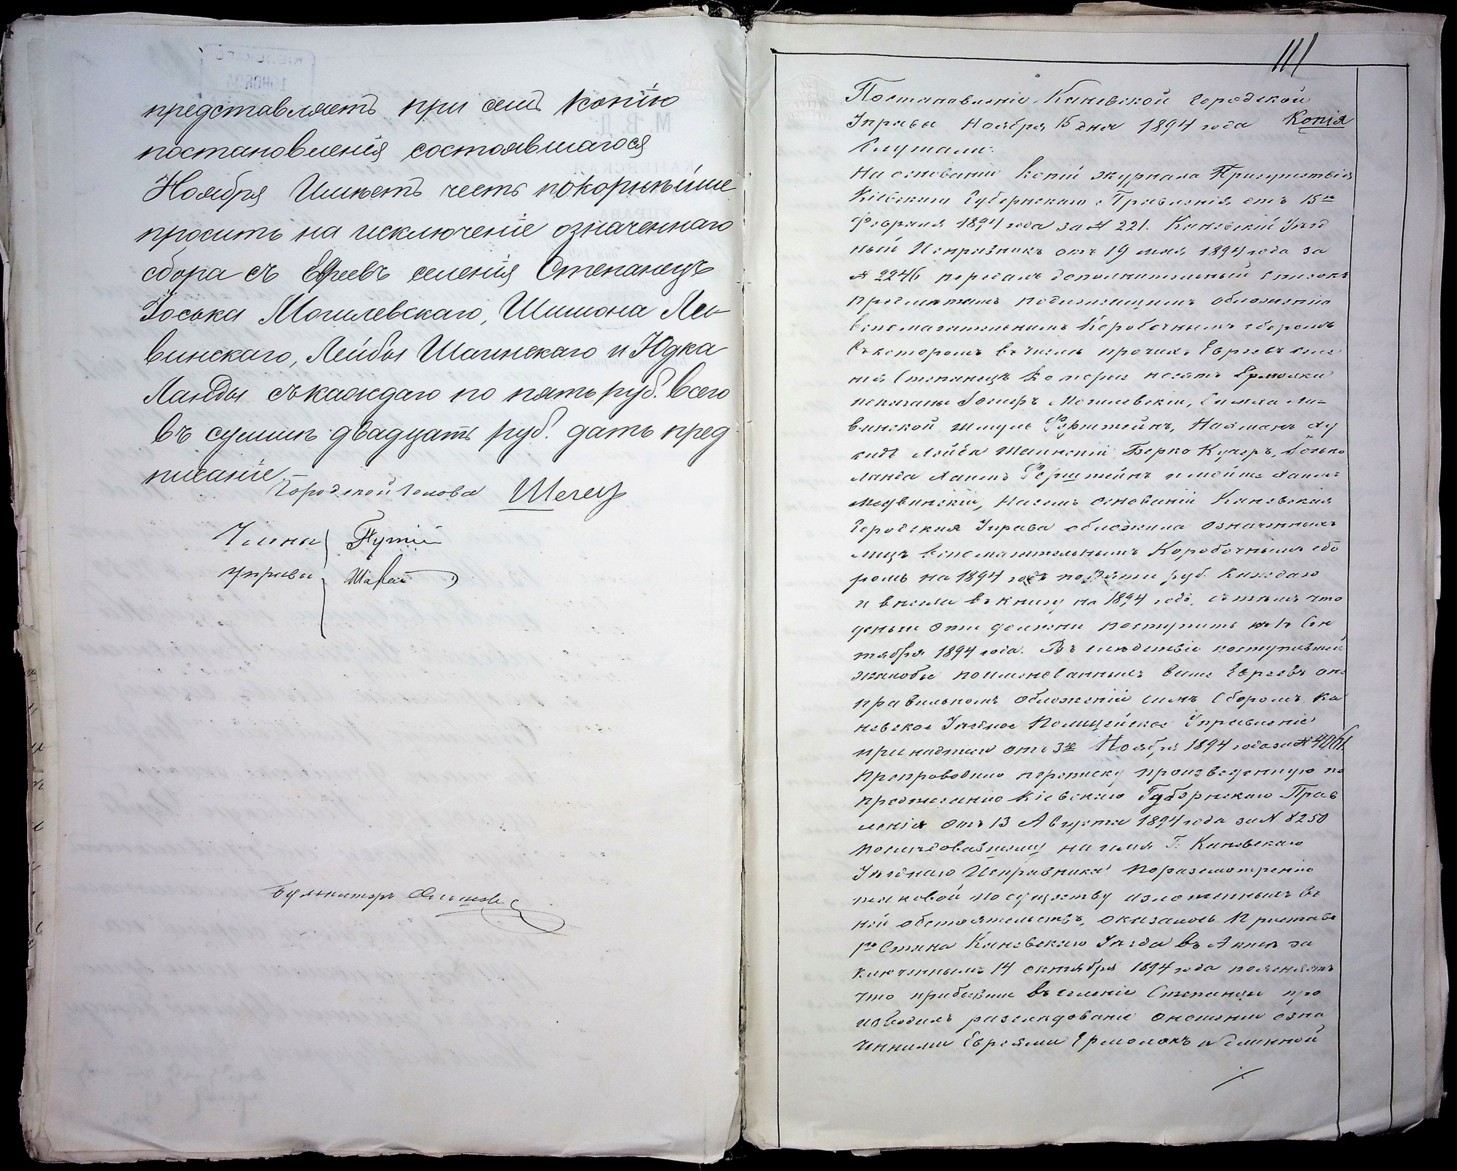 представляетъ при семъ копію
постановленія состоявшагося
Ноября Имѣетъ честь покорнѣйше
просить на исключеніе означеннаго
сбора съ Евреевъ селенія Степанецъ
Іоська Могилевскаго, Шимона Ле-
винскаго, Лейбы Шагинскаго и Юдка
Ланды съ каждаго по пять руб. всего
въ суммѣ двадцать руб. дать пред
писаніе.
Городской Голова
Члены
Управы
Бухгалтеръ
111
Постановленіе Каневской Городской
Управы Ноября 15 дня 1894 года Копія
Слушали:
На основаніи копіи журнала Присутствія
Кіевскаго Губернскаго Правленія отъ 15го
Февраля 1894 года за № 221. Каневскій Уѣзд
ный Исправникъ отъ 19 мая 1894 года за
№ 2246 передалъ дополнительный списокъ
предметамъ подлежащимъ обложенію
вспомагательнымъ Коробочнымъ сборомъ
въ которомъ въ числѣ прочихъ Евреевъ селе
нія Степанецъ которые носятъ Ермолки
показаны Іосифъ Могилевскій, Ле-
винской Шмуль Нахманъ
Лейба Шагинскій Берко Кучеръ,
Ланда Хаимъ
Медвинскій, На семъ основаніи Каневская
Городская Управа обложила означенныхъ
лицъ вспомагательнымъ Коробочнымъ сбо
ромъ на 1894 годъ по пяти руб. каждаго
и внесла въ книгу на 1894 годъ, съ тѣмъ что
деньги эти должны поступить къ 1 Сен
тября 1894 года. Въ слѣдствіе поступившей
жалобы поименованныхъ выше Евреевъ о не
правильномъ обложеніи симъ Сборомъ, Ка
невское Уѣздное Полицейское Управленіе
при надписи отъ 3го Ноября 1894 года за № 4061
препроводило переписку произведенную по
предписанію Кіевскаго Губернскаго Прав
ленія отъ 13 Августа 1894 года за № 8250
послѣдовавшему на имя Г. Каневскаго
Уѣзднаго Исправника По разсмотрѣнію
таковой по существу изложенныхъ въ
ней обстоятельствъ, оказалось Приставъ
1го Стана Каневскаго Уѣзда въ Актѣ за
ключенномъ 14 октября 1894 года поясняетъ
что прибывши въ селеніе Степанцы про
изводилъ разслѣдованіе о ношеніи озна
ченными Евреями Ермолокъ и длинной